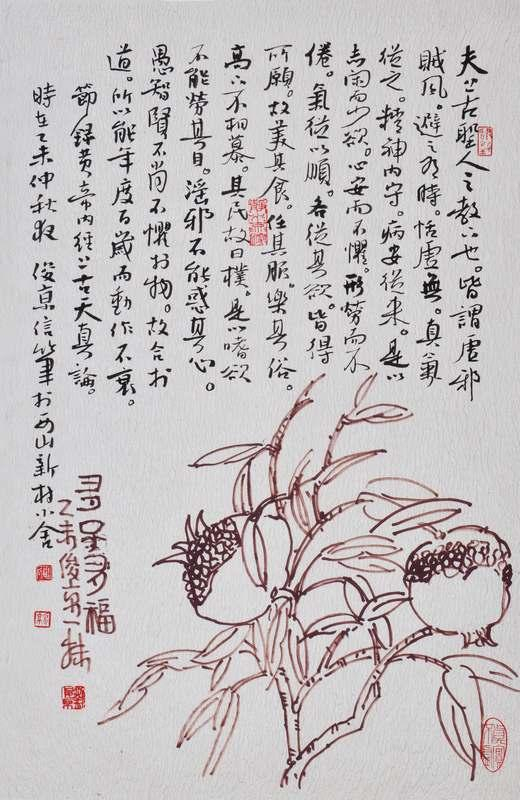 夫上古聖人之教下也。皆謂虛邪
賊風。避之有時。恬虛無。真氣
從之。精神內守。病安從來。是以
志閑而少欲。心安而不懼。形勞而不
倦。氣從以順。各從其欲。皆得
所願。故美其食。任其服。樂其俗。
高下不相慕。其民故曰樸。是以嗜欲
不能勞其目。淫邪不能惑其心。
愚智賢不肖不懼於物。故合於
道。所以能年度百歲而動作不衰。
節錄黃帝內經上古天真論。
時在乙未仲秋夜 俊京信筆於西山新村小舍
多福
乙未俊京一